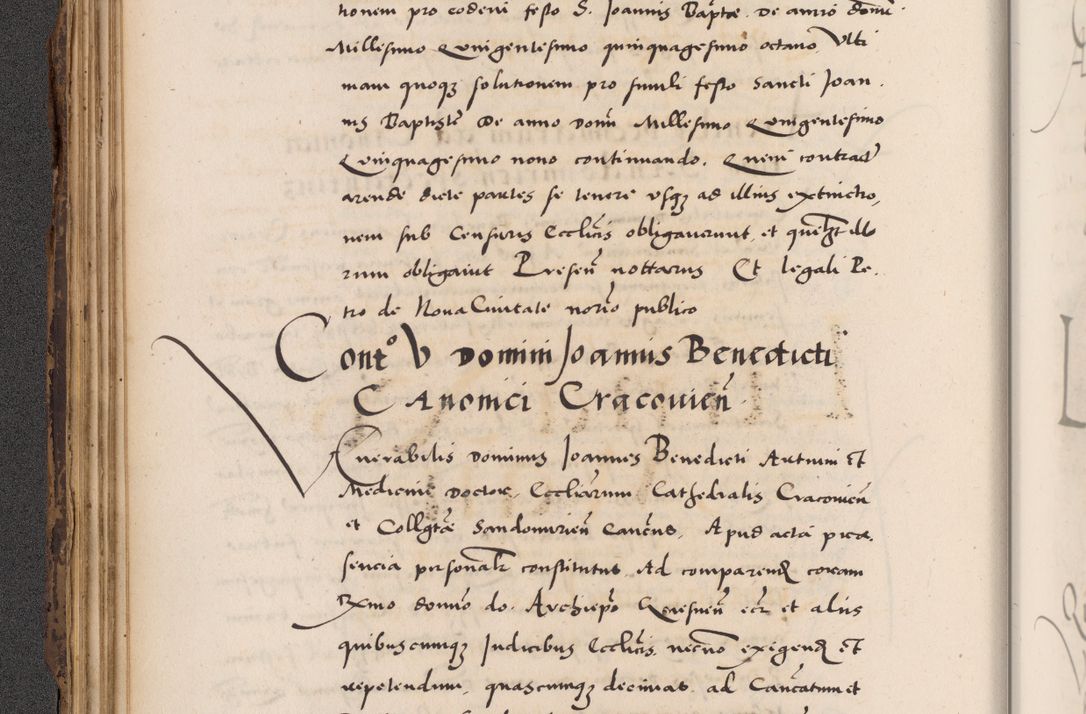 tionem pro eodem festo S. Joannis Baptae. De anno domi.
Millesimo Quingentesimo quinquagesimo octavo, Ulti
mam quoqz solutionem pro simili festo Sancti Joan.
nis Baptiste De anno Domi Millesimo Quingentesimo
Quinquagesimo nono continuando. Quem contract
arende dicte partes se tenere usqz ad illius extinctio,
nem sub Censuris Ecclicis obligaverunt, et illo
rum obligavit Presen nottarius Et legali Pe.
tro de Nova Civitate norio publico
Conto V Domini Joannis Benedicti
Canonici Cracovien
Venerabilis Dominus Joannes Benedicti Artium et
Medicine Doctor, Eccliarum Cathedralis Cracovien
et Collgtae Sandomirien Cancus, Apud acta
sencia personalr constitutus Ad comparend coram
Rxmo domio do. Archiepo Gnesnen ecz et aliis
quibuscumqz Judicibus Ecclicis, necno exigend et
repetendum, quascumqz decimas ad Cancatum et